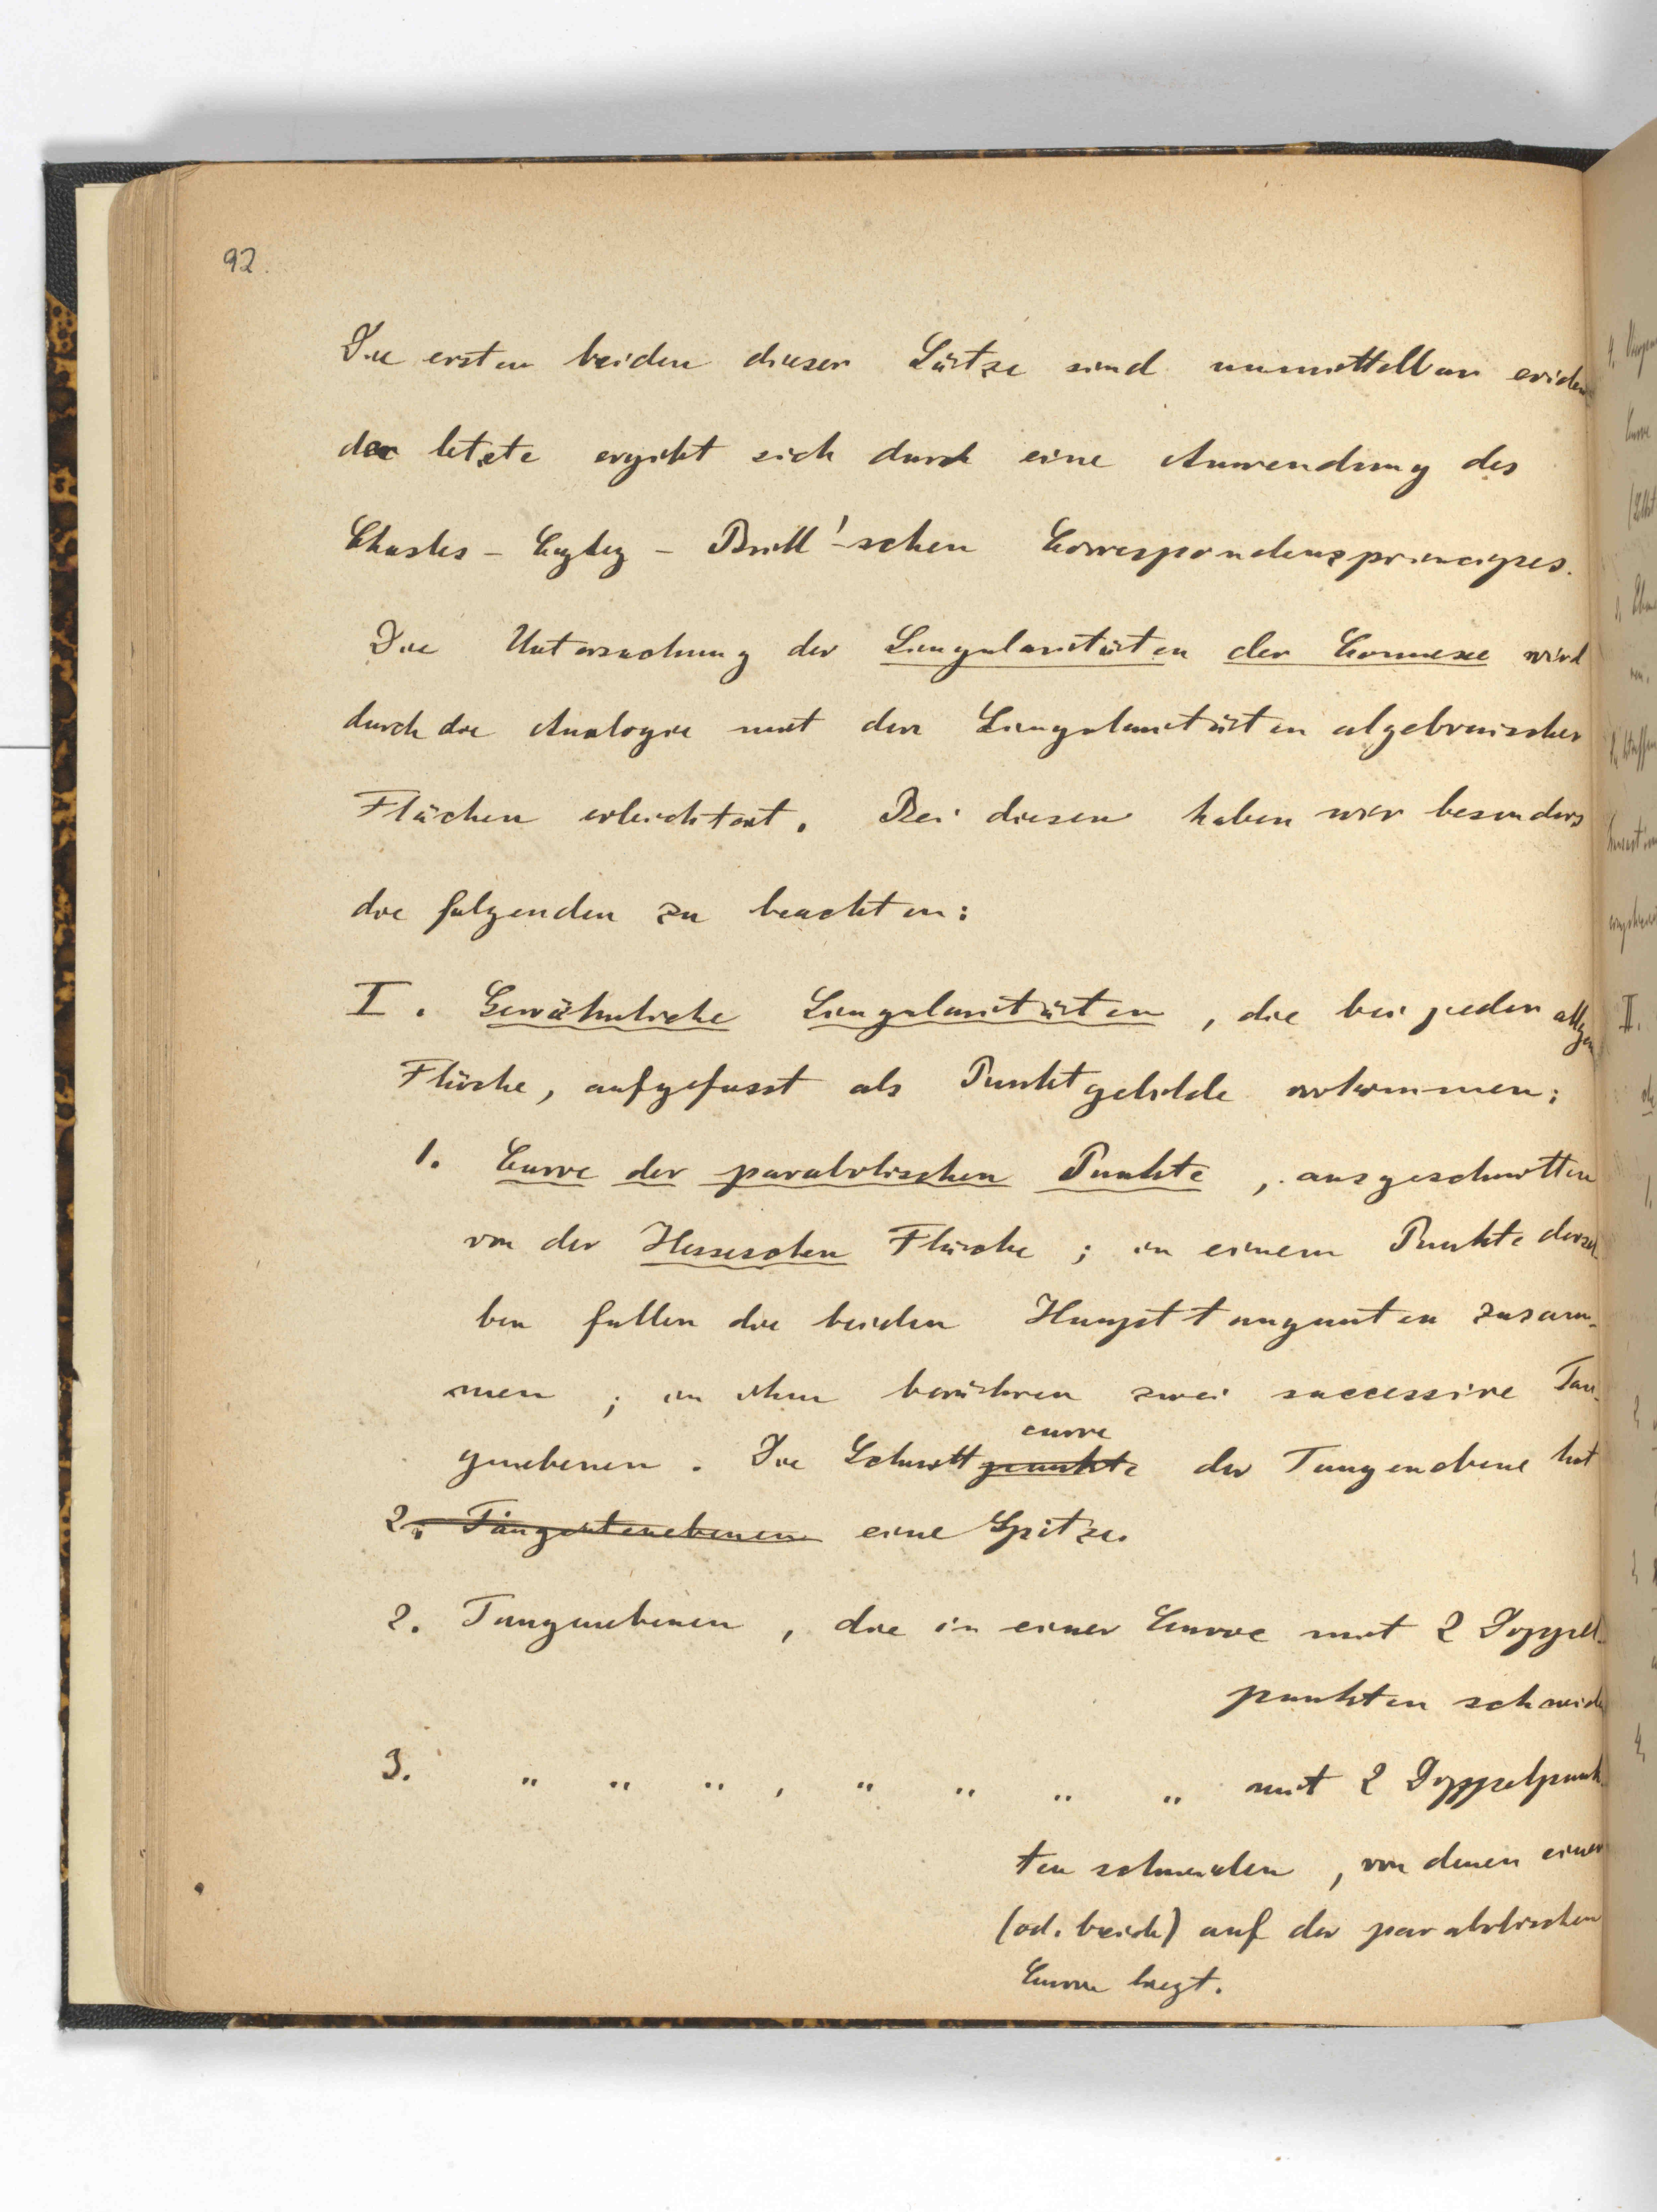 92.
Die ersten beiden dieser Sätze sind unmittelbar eviden
der letzte ergibt sich durch eine Anwendung des
Chasles - Cayley - Brill'-schen Correspondenzprincipes.
Die Untersuchung der Singularitäten der Connexe wird
durch die Analogie mit den Singularitäten algebraischer
Flächen erleichtert. Bei diesen haben wir besonders
die folgenden zu beachten:
I. Gewöhnliche Singularitäten, die bei jeder allgem
Fläche, aufgefasst als Punktgebilde vorkommen:
1. Curve der parabolischen Punkte, ausgeschnitten
von der Hesseschen Fläche; in einem Punkte dersel-
ben fallen die beiden Haupttangenten zusam-
men; in ihm berühren zwei successive Tan-
curve
genebenen. Die Schnittpunkte der Tangenebene hat
2. Tangentenebenen eine Spitze.
2. Tangenebenen, die in einer Curve mit 2 Doppel-
punkten schneide
3. " " " , " " " " mit 2 Doppelpunk-
ten schneiden, von denen einer
(od. beide) auf der parabolischen
Curve liegt.
II.